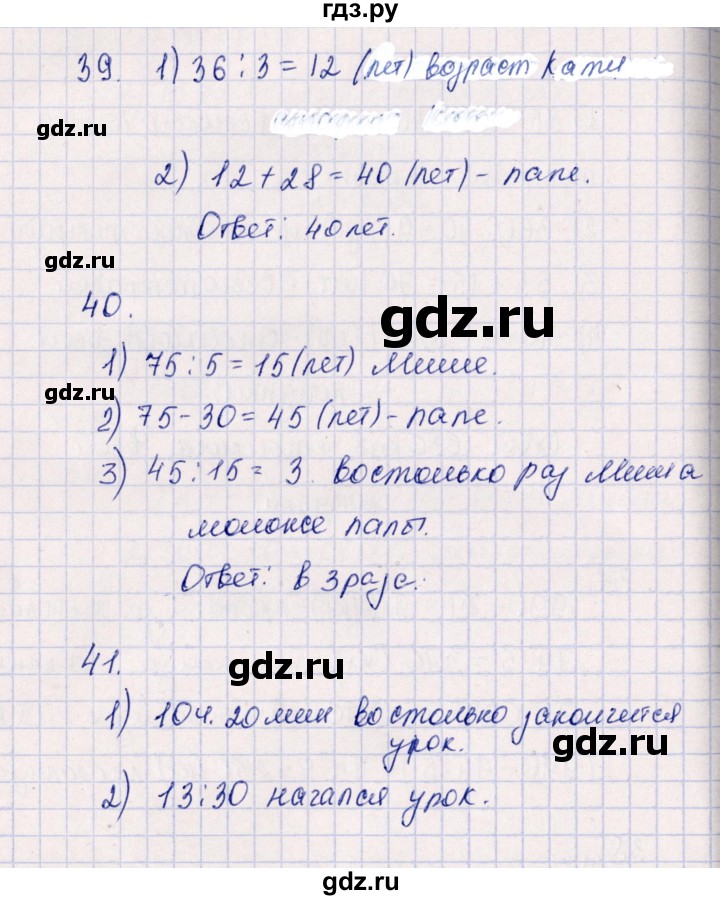 гдз.ру
39. 1) 36 : 3 = 12 (лет) возраст Кати
gdz.ru
2) 12 + 28 = 40 (лет) - папе.
Ответ: 40 лет.
gdz.ru
40.
gdz.ru
1) 75 : 5 = 15 (лет) Мише.
gdz.ru
2) 75 - 30 = 45 (лет) - папе.
3) 45 : 15 = 3. во столько раз Миша
моложе папы.
Ответ: в 3 раза.
41.
gdz.ru
1) 10 ч. 20 мин во столько закончится
урок.
gdz.ru
2) 13:30 начался урок.
gdz.ru